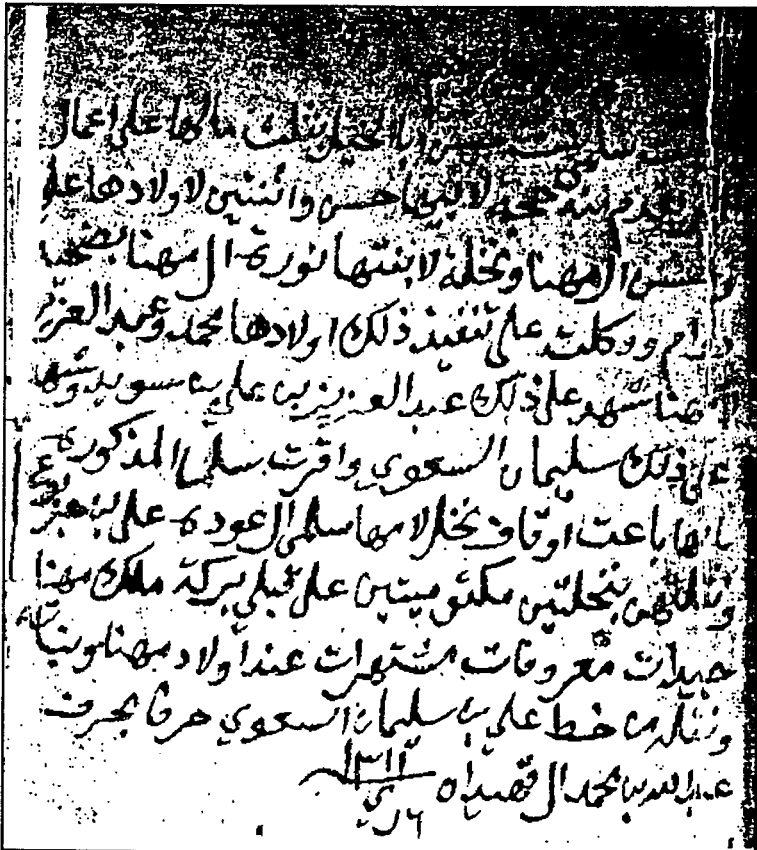 سلمى بنت حسن أبا الخيل بثلث مالها على اعمال
حجه لابيها حسن واثنتين لاولادها علي
وحسن آل مهنا ونخلة لابنتها نورة آل مهنا بضحيا
دوام ووكلت على تنفيذ ذلك اولادها محمد وعبد العزيز
المهنا شهد على ذلك عبد العزيز بن علي بن سويد وشهد
على ذلك سليمان السعوي واقرت سلمى المذكوره
بانها باعت اوقاف نخل لامها سلمى ال عوده على بن
ونقلتهن بنخلتين مكتوميتين على قبلي بركة ملك مهنا
جيدات معروفات مشتهرات عند اولاد مهنا
ونقله من خط علي بن سليمان السعوي حرفا بحرف
عبد الله بن محمد ال قصير اه ١٣١٢